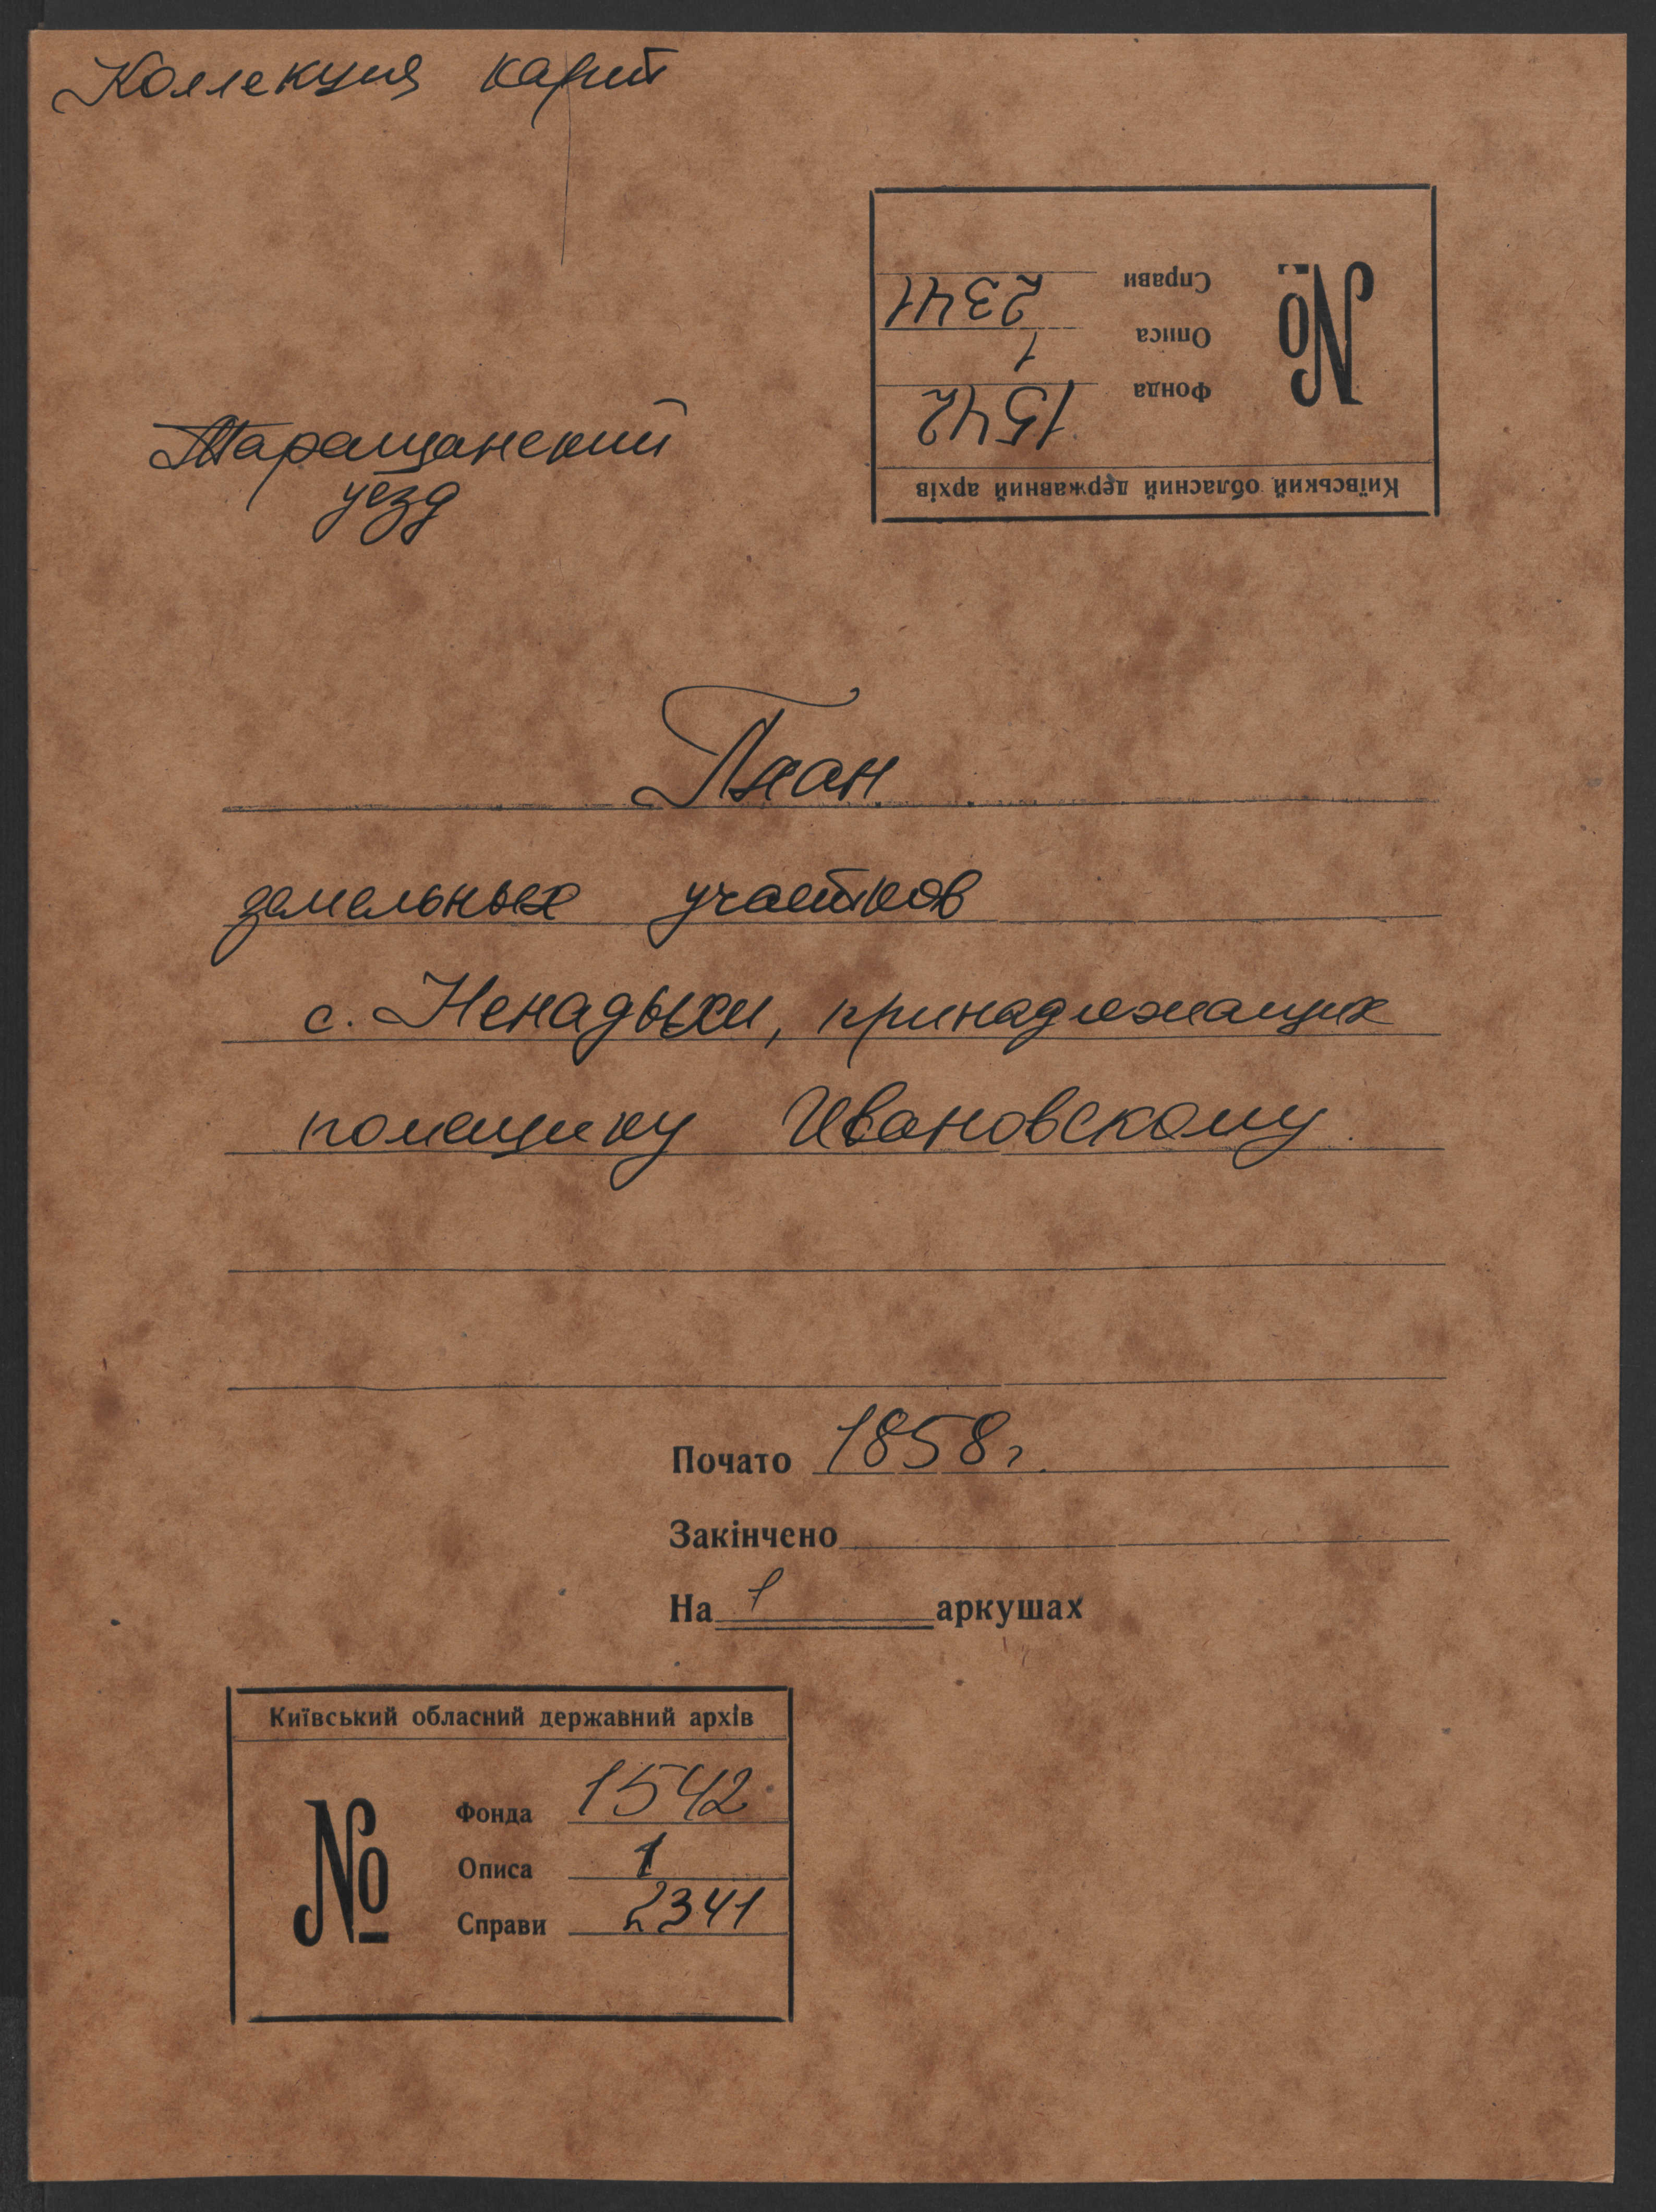 Коллекция карт
Київський обласний державний архів
№
Фонда 1542
Описа 1
Справи 2341
Таращанский
уезд
План
земельных участков
с. Ненадыхи, принадлежащих
помещику Ивановскому.
Почато 1858 г.
Закінчено
На 1 аркушах
Київський обласний державний архів
№
Фонда 1542
Описа 1
Справи 2341